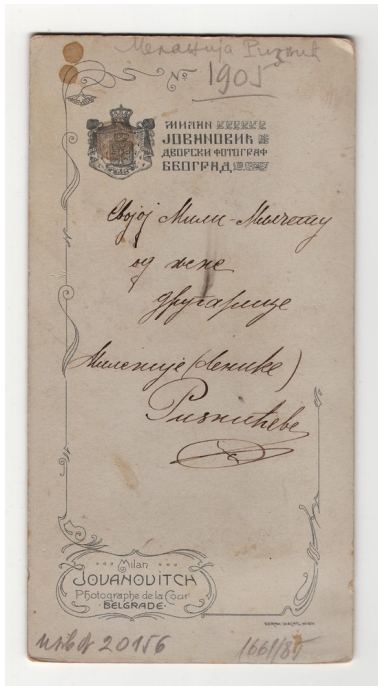 Меланија Ризнић
№ 1905
МИЛАН
ЈОВАНОВИЋ
ДВОРСКИ ФОТОГРАФ
БЕОГРАД
Својој Мили-
од њене
другарице
(Ленке)
Ризнићеве
Milan
JOVANOVITCH
Photographe de la Cour
BELGRADE
20156
1661/85